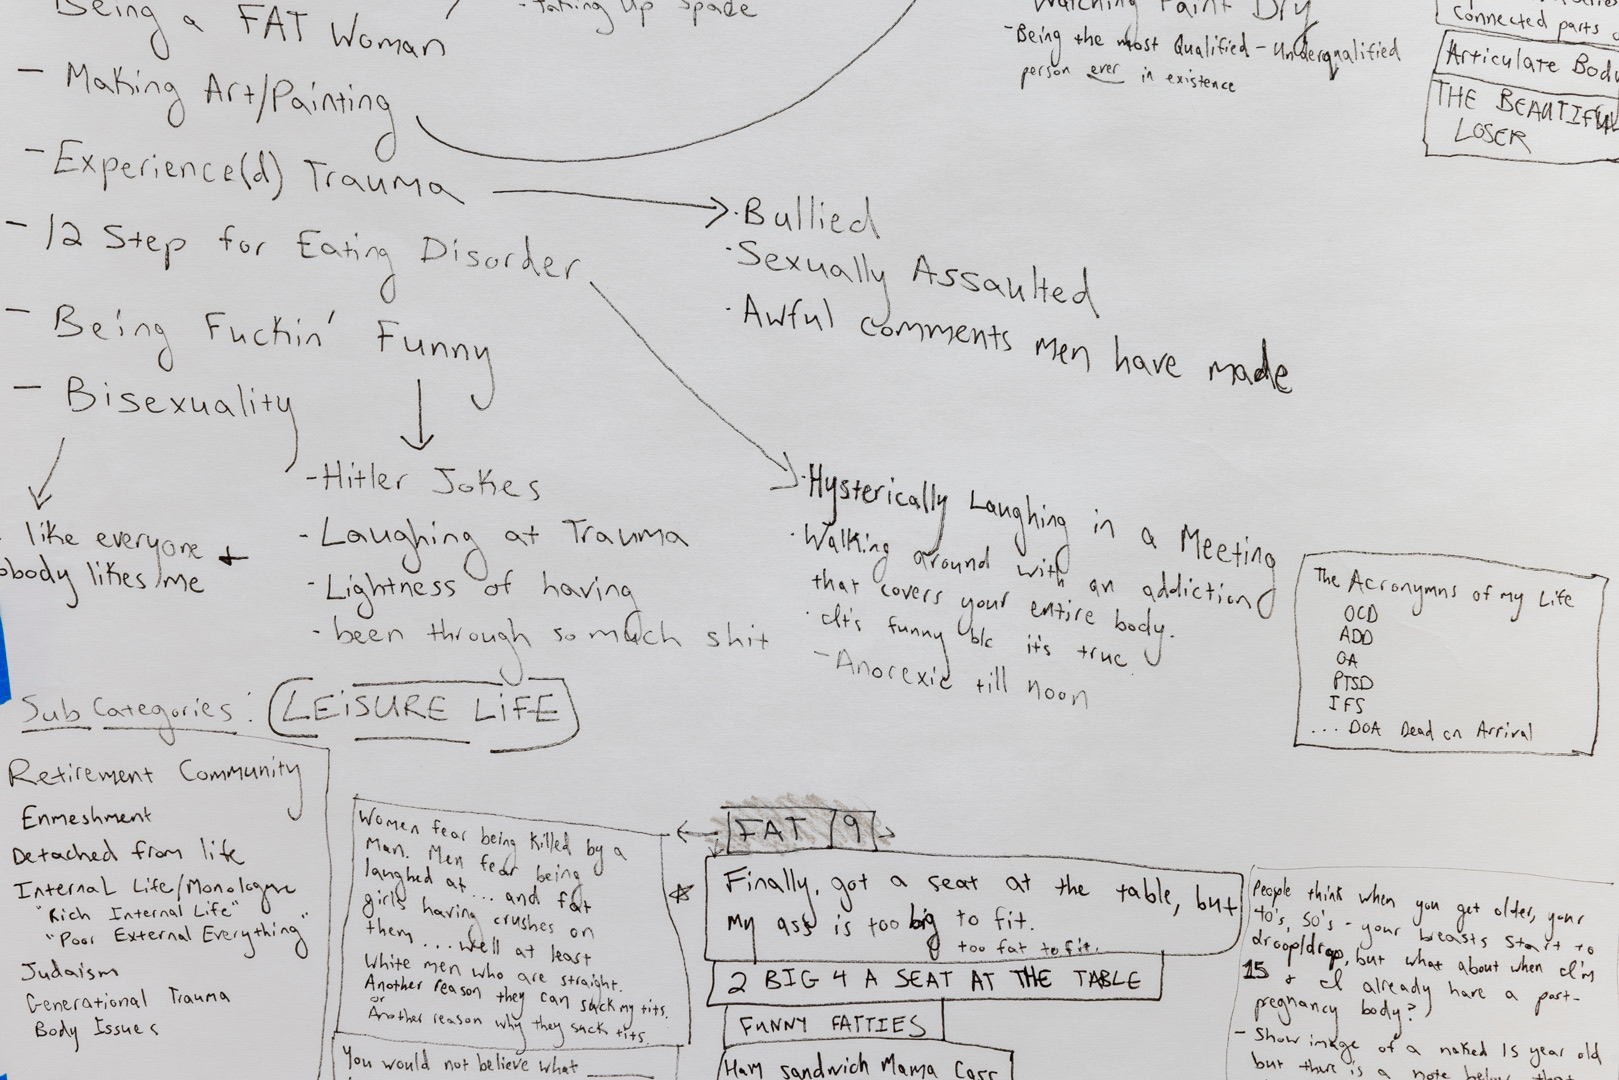 Being a FAT Woman
- Taking up space
Watching Paint Dry
- Being the most Qualified - Underqualified
person ever in existence
Connected parts
Articulate Body
THE BEAUTIFUL
LOSER
- Making Art/Painting
- Experience(d) Trauma
- 12 Step for Eating Disorder
- Being Fuckin' Funny
- Bisexuality
· Bullied
· Sexually Assaulted
· Awful comments men have made
like everyone +
nobody likes me
- Hitler Jokes
- Laughing at Trauma
- Lightness of having
- been through so much shit
· Hysterically Laughing in a Meeting
· Walking around with an addiction
that covers your entire body.
· It's funny b/c it's true
- Anorexic till noon
The Acronymns of my Life
OCD
ADD
OA
PTSD
IFS
... DOA Dead on Arrival
Sub Categories: LEiSURE LiFE
Retirement Community
Enmeshment
Detached from life
Internal Life/Monologue
"Rich Internal Life"
"Poor External Everything"
Judaism
Generational Trauma
Body Issues
Women fear being killed by a
man. Men fear being
laughed at... and fat
girls having crushes on
them... well at least
white men who are straight.
Another reason they can suck my tits.
or
Another reason why they suck tits.
You would not believe what
FAT /9
Finally, got a seat at the table, but
my ass is too big to fit.
too fat to fit.
2 BIG 4 A SEAT AT THE TABLE
FUNNY FATTIES
Ham sandwich Mama Cass
People think when you get older, your
40's, 50's - your breasts start to
droop/drop, but what about when I'm
15 + I already have a post-
pregnancy body?
- Show image of a naked 15 year old
but there is a note below that